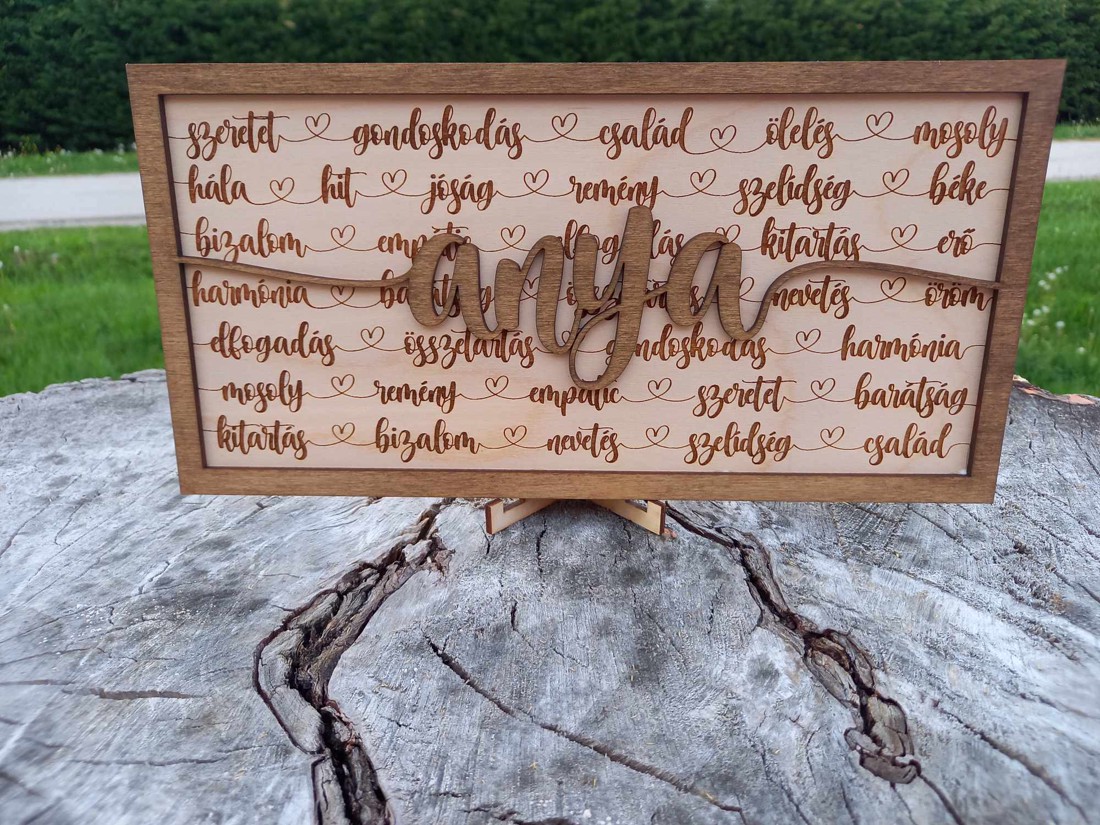 szeretet gondoskodás család ölelés mosoly
hála hit jóság remény szelídség béke
bizalom empátia elfogadás kitartás erő
anya
harmónia barátság nevetés öröm
elfogadás összetartás gondoskodás harmónia
mosoly remény empátia szeretet barátság
kitartás bizalom nevetés szelídség család